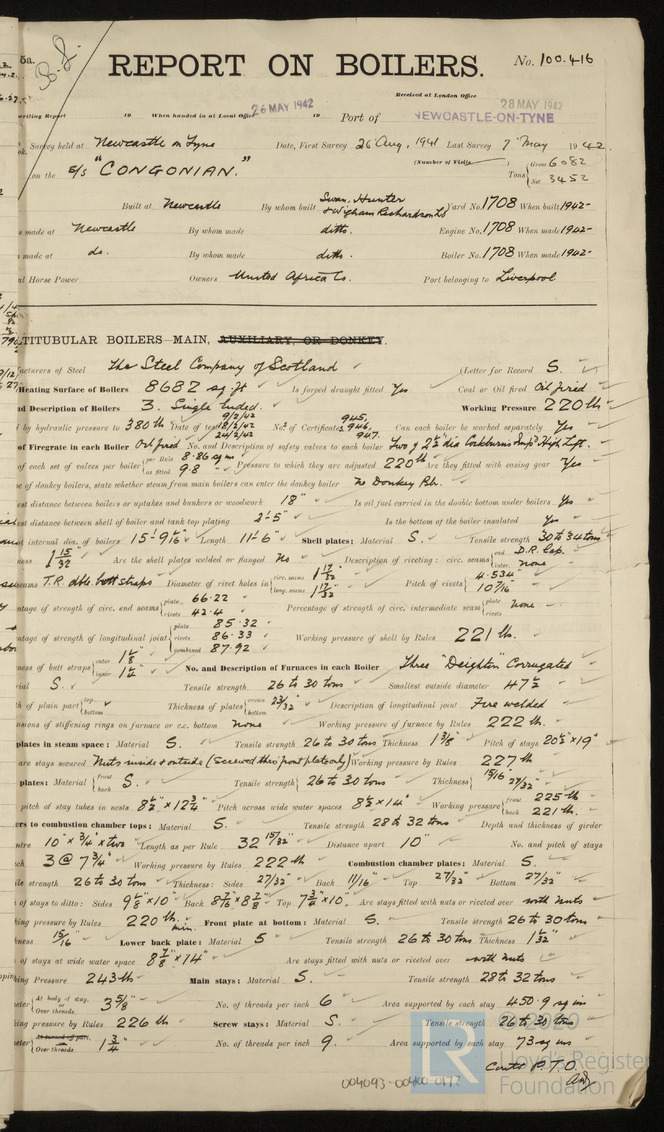 5a.
B.L.
REPORT ON BOILERS.
No. 100.416
Received at London Office
writing Report 19 When handed in at Local Office 26 MAY 1942 19 Port of NEWCASTLE-ON-TYNE 28 MAY 1942
Survey held at Newcastle on Tyne Date, First Survey 26 Aug, 1941 Last Survey 7 May 1942
on the S/S "CONGONIAN." (Number of Visits ) Tons Gross 6082 Net 3452
Built at Newcastle By whom built Swan, Hunter & Wigham Richardson Ld Yard No. 1708 When built 1942
s made at Newcastle By whom made ditto. Engine No. 1708 When made 1942
made at do. By whom made ditto. Boiler No. 1708 When made 1942
al Horse Power Owners United Africa Co. Port belonging to Liverpool
TITUBULAR BOILERS MAIN, AUXILIARY, OR DONKEY.
facturers of Steel The Steel Company of Scotland (Letter for Record S.
Heating Surface of Boilers 8682 sq. ft Is forced draught fitted Yes Coal or Oil fired Oil fired
nd Description of Boilers 3. Single Ended. Working Pressure 220 lb
d by hydraulic pressure to 380 lb Date of test 9/2/42 18/2/42 24/2/42 No. of Certificate 945, 946, 947. Can each boiler be worked separately Yes
of Firegrate in each Boiler Oil fired No. and Description of safety valves to each boiler Two of 2½" dia Cockburns Impd High Lift.
of each set of valves per boiler per Rule 8.86 sq in as fitted 9.8 " Pressure to which they are adjusted 220 lb Are they fitted with easing gear Yes
se of donkey boilers, state whether steam from main boilers can enter the donkey boiler No Donkey Blr.
est distance between boilers or uptakes and bunkers or woodwork 18" Is oil fuel carried in the double bottom under boilers Yes
est distance between shell of boiler and tank top plating 2'-5" Is the bottom of the boiler insulated Yes
st internal dia. of boilers 15'-9 1/16" Length 11'-6" Shell plates: Material S. Tensile strength 30 to 34 tons
ess 1 15/32" Are the shell plates welded or flanged No Description of riveting: circ. seams end D.R. Lap. inter. none
eams T.R. dble butt straps Diameter of rivet holes in circ. seams 1 17/32" long. seams 1 17/32" Pitch of rivets 4.534" 10 7/16"
entage of strength of circ. end seams plate 66.22 rivets 42.4 Percentage of strength of circ. intermediate seam plate rivets none
ntage of strength of longitudinal joint plate 85.32 rivets 86.33 combined 87.92 Working pressure of shell by Rules 221 lb.
ness of butt straps outer 1⅛" inner 1¼" No. and Description of Furnaces in each Boiler Three "Deighton" Corrugated
ial S. Tensile strength 26 to 30 tons Smallest outside diameter 47½
th of plain part top bottom Thickness of plates crown bottom 23/32" Description of longitudinal joint Fire welded
nsions of stiffening rings on furnace or c.c. bottom none Working pressure of furnace by Rules 222 lb.
plates in steam space: Material S. Tensile strength 26 to 30 tons Thickness 1⅜" Pitch of stays 20½" × 19"
are stays secured Nuts inside & outside (Screwed thro' front plate only) Working pressure by Rules 227 lb
plates: Material front back S. Tensile strength 26 to 30 tons Thickness 15/16" 27/32"
pitch of stay tubes in nests 8½" × 12¾" Pitch across wide water spaces 8½" × 14" Working pressure front 225 lb back 221 lb.
ers to combustion chamber tops: Material S. Tensile strength 28 to 32 tons Depth and thickness of girder
ntre 10" × ¾" × two Length as per Rule 32 15/32" Distance apart 10" No. and pitch of stays
ch 3 @ 7¾" Working pressure by Rules 222 lb Combustion chamber plates: Material S.
ile strength 26 to 30 tons Thickness: Sides 27/32" Back 11/16" Top 27/32" Bottom 27/32"
of stays to ditto: Sides 9½" × 10" Back Top 7¾" × 10" Are stays fitted with nuts or riveted over with nuts
king pressure by Rules 220 lb. min. Front plate at bottom: Material S. Tensile strength 26 to 30 tons
kness 15/16" Lower back plate: Material S Tensile strength 26 to 30 tons Thickness 1 1/32"
of stays at wide water space 8⅞" × 14" Are stays fitted with nuts or riveted over with nuts
ing Pressure 243 lb Main stays: Material S. Tensile strength 28 to 32 tons
eter At body of stay, or Over threads 3⅝" No. of threads per inch 6 Area supported by each stay 450.9 sq ins
king pressure by Rules 226 lb Screw stays: Material S. Tensile strength 26 to 30 tons
eter Over threads 1¾" No. of threads per inch 9. Area supported by each stay 73 sq ins
Contd P.T.O.
004093-004100-0172
© 2020
LR
Lloyd's Register
Foundation